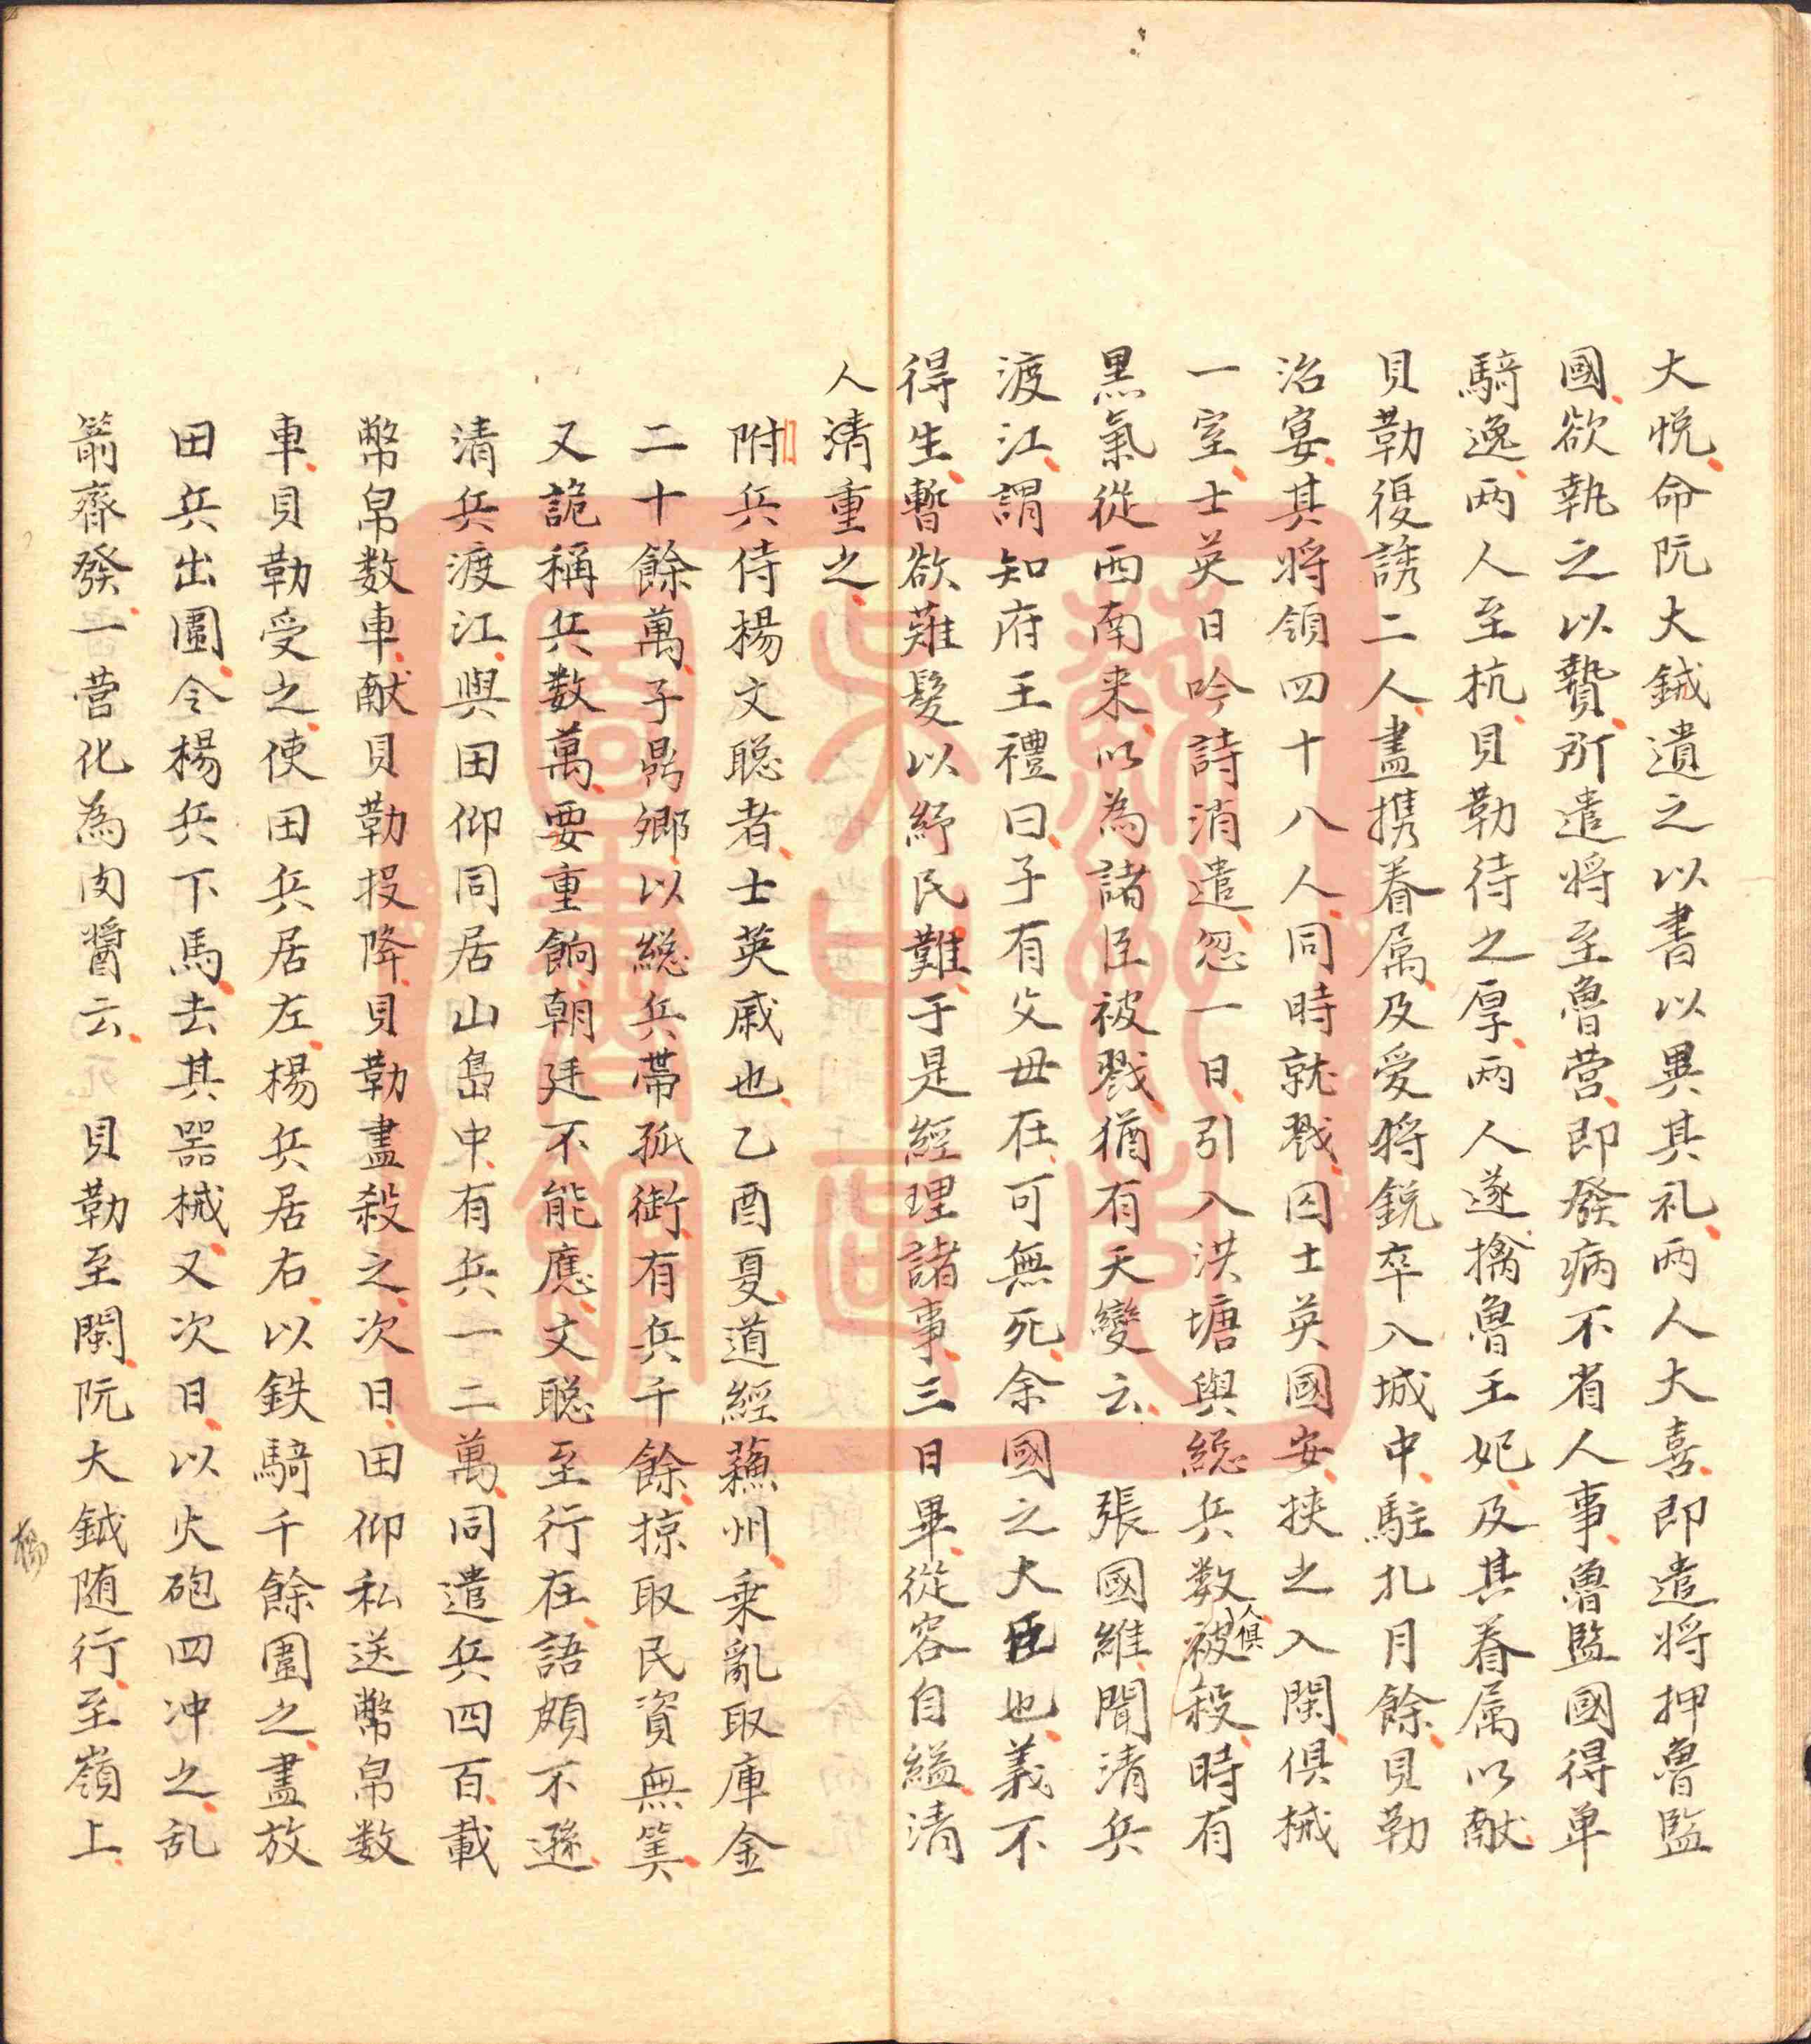 大悦命阮大鋮遺之以書以異其礼两人大喜即遣将押魯監
國欲執之以贄所遣将至魯营即發病不省人事魯監國得单
騎逸两人至杭貝勒待之厚两人遂擒魯王妃及其眷属以献
貝勒復誘二人盡携眷属及爱将鋭卒入城中駐扎月餘貝勒
治宴其将領四十八人同時就戮囚士英國安挟之入閩俱械
一室士英日吟詩消遣忽一日引入洪塘與総兵数人俱被殺時有
黑氣從西南来以為諸臣被戮猶有天變云 張國維聞清兵
渡江謂知府王禮曰子有父母在可無死余國之大臣也義不
得生暫欲薙髮以紓民難于是經理諸事三日畢從容自縊清
人清重之
附兵侍楊文聪者士英戚也乙酉夏道經蘓州乗亂取庫金
二十餘萬子鼎卿以総兵帶孤衘有兵千餘掠取民資無筭
又詭稱兵数萬要重餉朝廷不能應文聪至行在語頗不遜
清兵渡江與田仰同居山島中有兵一二萬同遣兵四百載
幣帛数車献貝勒投降貝勒盡殺之次日田仰私送幣帛数
車貝勒受之使田兵居左楊兵居右以鉄騎千餘圍之盡放
田兵出圍令楊兵下馬去其噐械又次日以火砲四冲之乱
箭齊發一营化為肉醬云 貝勒至閩阮大鋮随行至嶺上
楊